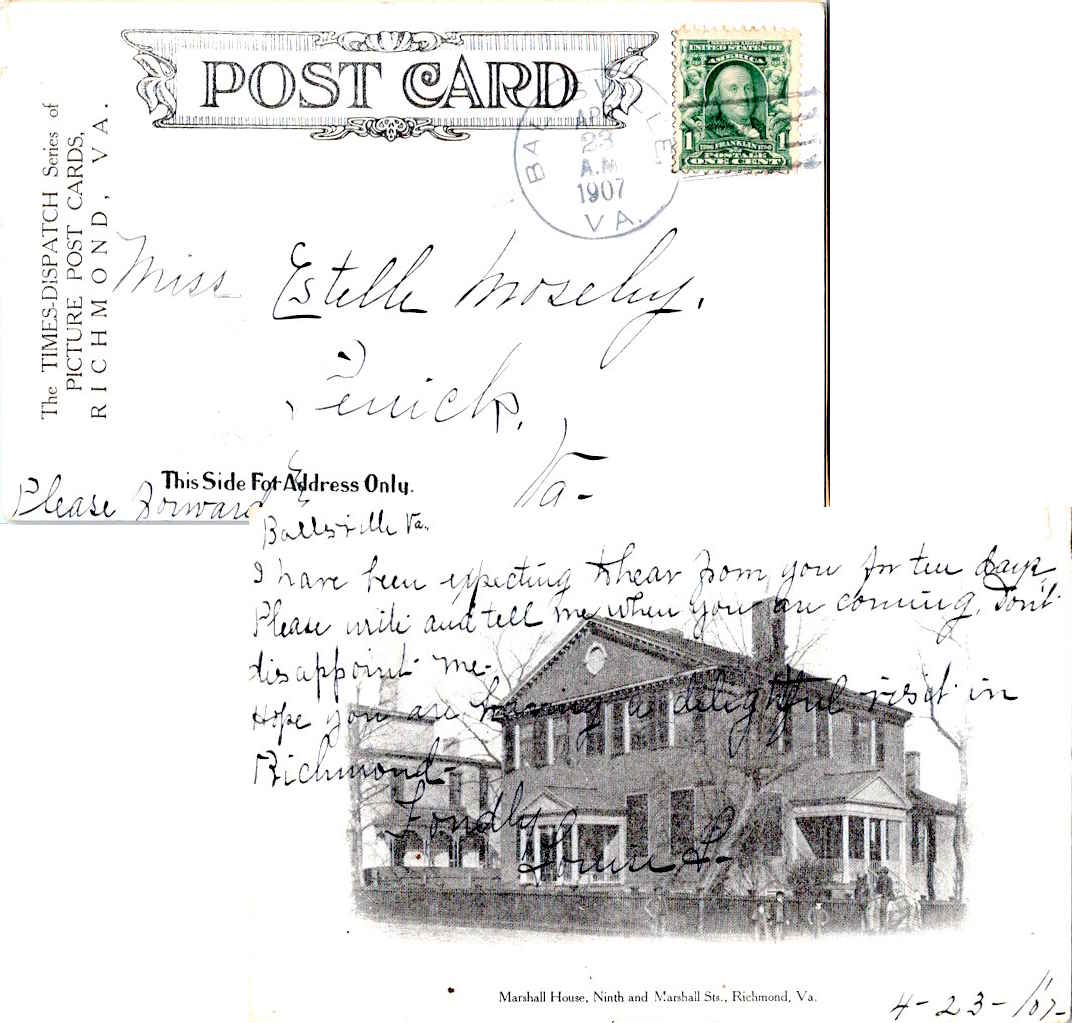 POST CARD
The TIMES-DISPATCH Series of
PICTURE POST CARDS,
RICHMOND, VA.
UNITED STATES OF
AMERICA
1 FRANKLIN 1
POSTAGE
ONE CENT
BALLSVILLE
APR
23
A.M
1907
VA.
Miss Estelle Moseley.
Fenick,
Va-
This Side For Address Only.
Please Forward
Ballsville Va.
I have been expecting to hear from you for ten days,
Please write and tell me when you are coming, Don't
disappoint me-
Hope you are having a delightful visit in
Richmond-
Fondly
Marshall House, Ninth and Marshall Sts., Richmond, Va.
4-23-/07-